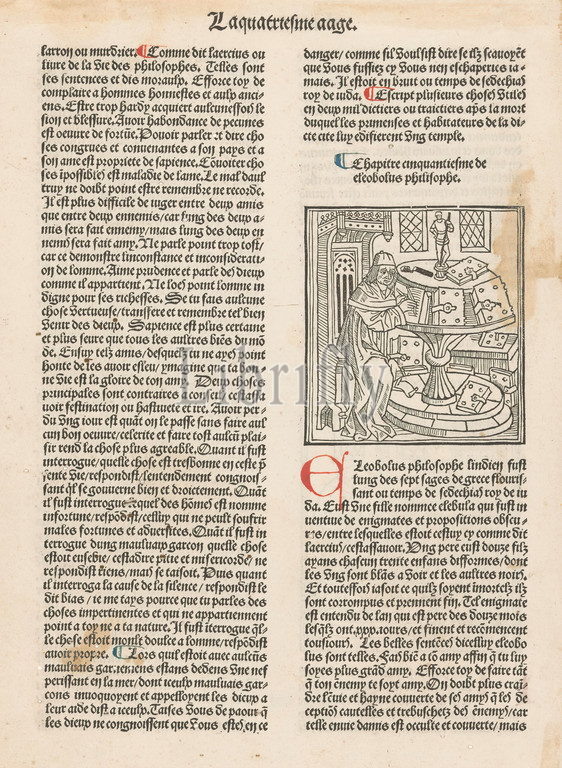 La quatriesme aage.
larron ou murdrier. Comme dit laercius ou
liure de la vie des philosophes. Telles sont
ses sentences et dis moraulx. Efforce toy de
complaire a hommes honnestes et aulx anci-
ens. Estre trop hardy acquiert aulcunesfoys le
sion et blessure. Avoir habondance de pecunes
est oeuvre de fortũe. Pouvoir parler et dire cho
ses congrues et convenantes a son pays et a
son ame est propriete de sapience. Cõuoiter cho
ses ĩpossibles est maladie de lame. Le mal daul
truy ne doibt point estre remembre ne recorde.
Il est plus difficile de iuger entre deux amis
que entre deux ennemis/car lung des deux a-
mis sera fait ennemy/mais lung des deux en
nemis sera fait amy. Ne parle point trop tost/
car ce demonstre linconstance et inconsiderati
on de lomme. Aime prudence et parle des dieux
comme il appartient. Ne loes point lomme in
digne pour ses richesses. Se tu fais aulcune
chose vertueuse/transfere et remembre tel bien
venir des dieux. Sapience est plus certaine
et plus seure que tous les aultres biẽs du mõ
de. Ensuy telz amis/desquelz tu ne ayes point
honte de les avoir esleu/
ne vie est la gloire de ton amy. Deux choses
principales sont contraires a conseil/cest assa
uoir festination ou hastivete et ire. Avoir per-
du vng iour est quãt on le passe sans faire aul
cun bon oeuvre/celerite et faire tost aulcũ plai-
sir rend la chose plus agreable. Quant il fust
interrogue/quelle chose est tresbonne en ceste p̃
sente vie/respondist/lentendement congnois-
sant q̃l se gouverne bien et droictement. Quãt
il fust interrogue quel des hõmes est nomme
infortune/respõdist/celluy qui ne peult souffrir
males fortunes et adversites. Quãt il fust in
terrogue dung maulvaix garcon quelle chose
estoit eusebie/cestadire pitie et misericorde/ne
respondist riens/mais se taisoit. Puis quant
il interroga la cause de la silence/respondist le
dit bias/ie me tays pource que tu parles des
choses impertinentes et qui ne appartiennent
point a toy ne a ta nature. Il fust interrogue q̃l-
le chose estoit moult doulce a lomme/respõdist
avoir propre. Lors quil estoit avec aulcũs
maulvais garconnens estans dedens vne nef
perissant en la mer/dont iceulx maulvais gar-
cons invoquoyent et appelloyent les dieux a
leur aide dist a iceulx. Taises vous de paour q̃
les dieux ne congnoissent que vous estes en ce
danger/comme sil voulsist dire se ilz scavoyẽt
que vous fussiez cy vous nen eschaperies ia-
mais. Il estoit en bruit ou temps de sedechias
roy de iuda. Escript plusieurs choses vtiles
en deux mil dictiers ou traictiers aps̃ la mort
duquel les prinenses et habitateurs de la di-
cte cite luy edifierent vng temple.
Chapitre cinquantiesme de
cleobolus philosophe.
CLeobolus philosophe lindien fust
lung des sept sages de grece flouris-
sant ou temps de sedechias roy de iu
da. Eust vne fille nommee clebula qui fust in
uentiue de enigmates et propositions obscu-
res/entre lesquelles estoit cestuy cy comme dit
laercius/cestassavoir. Vng pere eust douze filz
ayans chascun trente enfans difformes/dont
les vngs sont blãs a voir et les aultres noirs.
Et toutesfois iasoit ce quilz soyent imortelz ilz
sont corrumpus et prennent fin. Tel enigmate
est entendu de lan qui est pere des douze mois
lesq̃lz ont.xxx.iours/et finent et recõmencent
tousiours. Les belles sentẽces dicelluy cleobo
lus sont telles. Fais biẽ a tõ amy affin q̃ tu luy
soyes plus grãd amy. Efforce toy de faire tãt
q̃ ton ẽnemy te soyt amy. On doibt plus crain
dre lenuie et hayne couverte de ses amys q̃ les de
ceptiõs cautelles et trebuschetz des ẽnemys/car
telle enuie damis est occulte et couverte/mais
Librifly